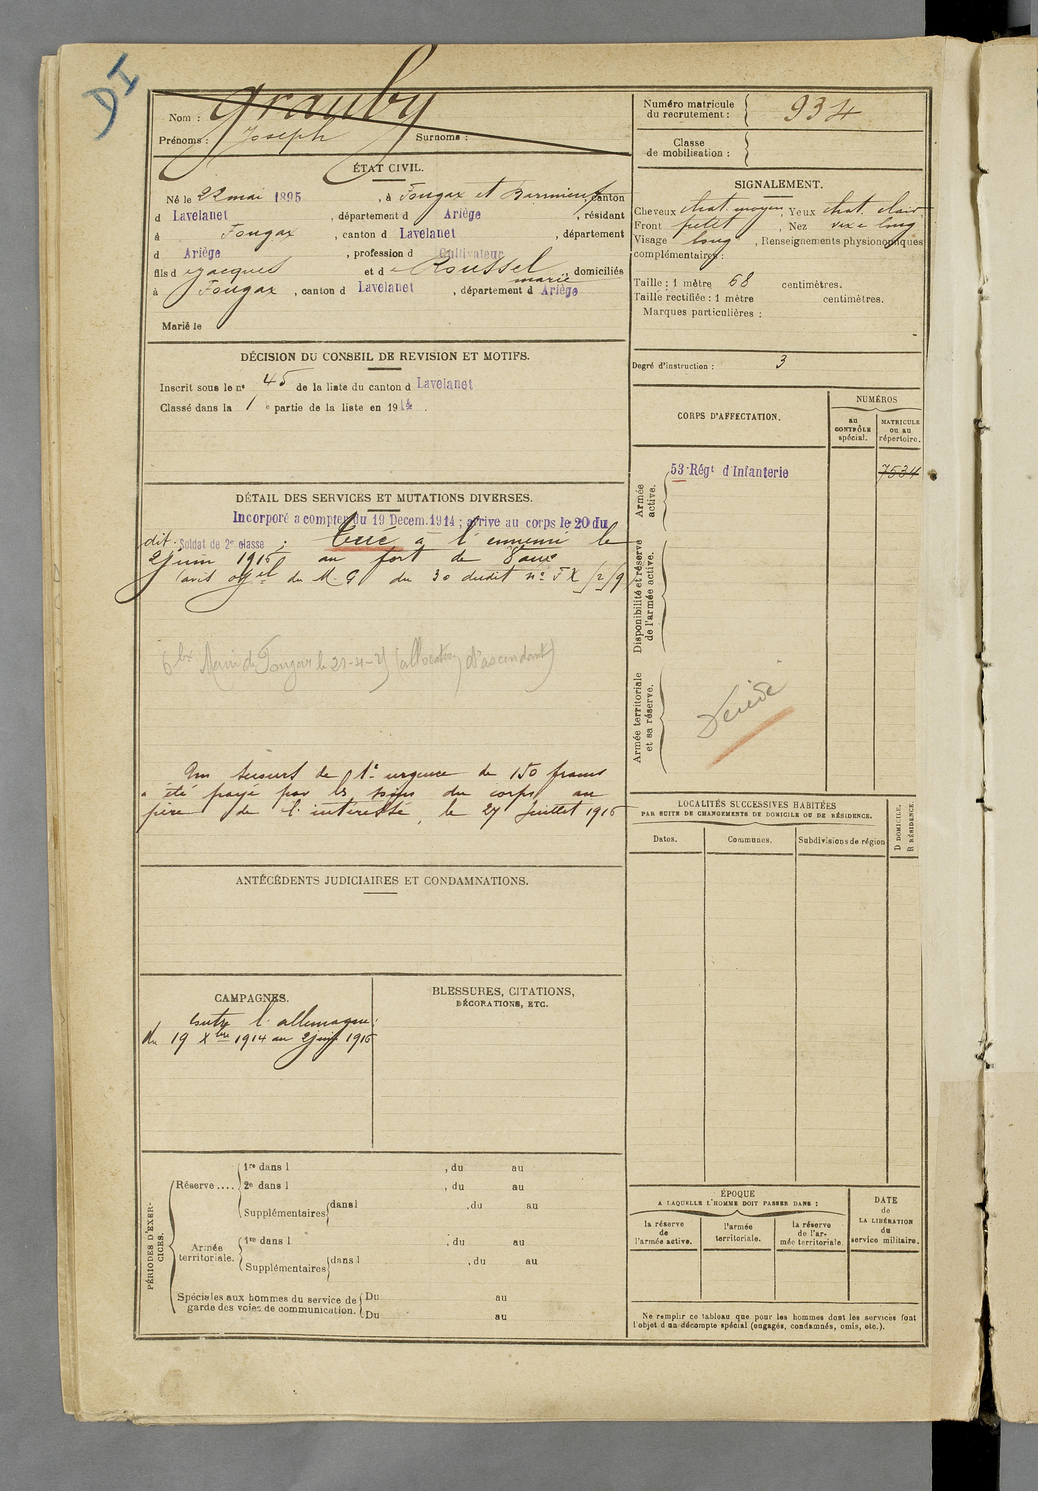 DI
Nom : Grauby
Prénoms : Joseph Surnoms :
Numéro matricule du recrutement : 934
Classe de mobilisation :
ÉTAT CIVIL.
Né le 22 mai 1895, à Fougax et Barrineuf, canton
d Lavelanet, département d Ariège, résidant
à Fougax, canton d Lavelanet, département
d Ariège, profession d Cultivateur
fils d e Jacques et d e Roussel marie, domiciliés
à Fougax, canton d Lavelanet, département d Ariège
Marié le
SIGNALEMENT.
Cheveux chat. moyen, Yeux chat. clair
Front petit, Nez long
Visage long, Renseignements physionomiques
complémentaires :
Taille : 1 mètre 68 centimètres.
Taille rectifiée : 1 mètre centimètres.
Marques particulières :
Degré d'instruction : 3
DÉCISION DU CONSEIL DE REVISION ET MOTIFS.
Inscrit sous le n° 45 de la liste du canton d Lavelanet
Classé dans la 1 e partie de la liste en 1914.
CORPS D'AFFECTATION.
NUMÉROS
au CONTRÔLE spécial.
MATRICULE ou au répertoire.
Armée active.
53e Régt d'Infanterie
7534
Disponibilité et réserve de l'armée active.
Armée territoriale et sa réserve.
DÉTAIL DES SERVICES ET MUTATIONS DIVERSES.
Incorporé a compter du 19 Decem. 1914 ; arrive au corps le 20 du
dit. Soldat de 2e classe ; tué à l'ennemi le
2 juin 1916 au fort de Vaux
(avis offel du M. G du 30 dudit n° FX
Mairie de Fougax le 21-4- (allocation d'ascendant)
Un secours de 1e urgence de 150 francs
a été payé par les soins du corps au
père de l'intéressé, le 27 Juillet 1916
LOCALITÉS SUCCESSIVES HABITÉES
PAR SUITE DE CHANGEMENTS DE DOMICILE OU DE RÉSIDENCE.
Dates. Communes. Subdivisions de région
D DOMICILE.
R RÉSIDENCE.
ANTÉCÉDENTS JUDICIAIRES ET CONDAMNATIONS.
CAMPAGNES.
contre l'allemagne :
du 19 Xbre 1914 au 2 juin 1916
BLESSURES, CITATIONS,
DÉCORATIONS, ETC.
PÉRIODES D'EXERCICES.
Réserve....
1re dans l , du au
2e dans l , du au
Supplémentaires dans l , du au
Armée territoriale.
1re dans l , du au
Supplémentaires dans l , du au
Spéciales aux hommes du service de
garde des voies de communication.
Du au
Du au
ÉPOQUE
A LAQUELLE L'HOMME DOIT PASSER DANS :
la réserve de l'armée active.
l'armée territoriale.
la réserve de l'armée territoriale.
DATE de LA LIBÉRATION du service militaire.
Ne remplir ce tableau que pour les hommes dont les services font
l'objet d'un décompte spécial (engagés, condamnés, omis, etc.).